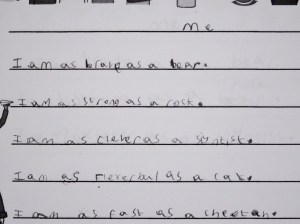 Me
I am as brave as a bear.
I am as strong as a rock.
I am as clever as a syntist.
I am as as a cat.
I am as fast as a cheetah.